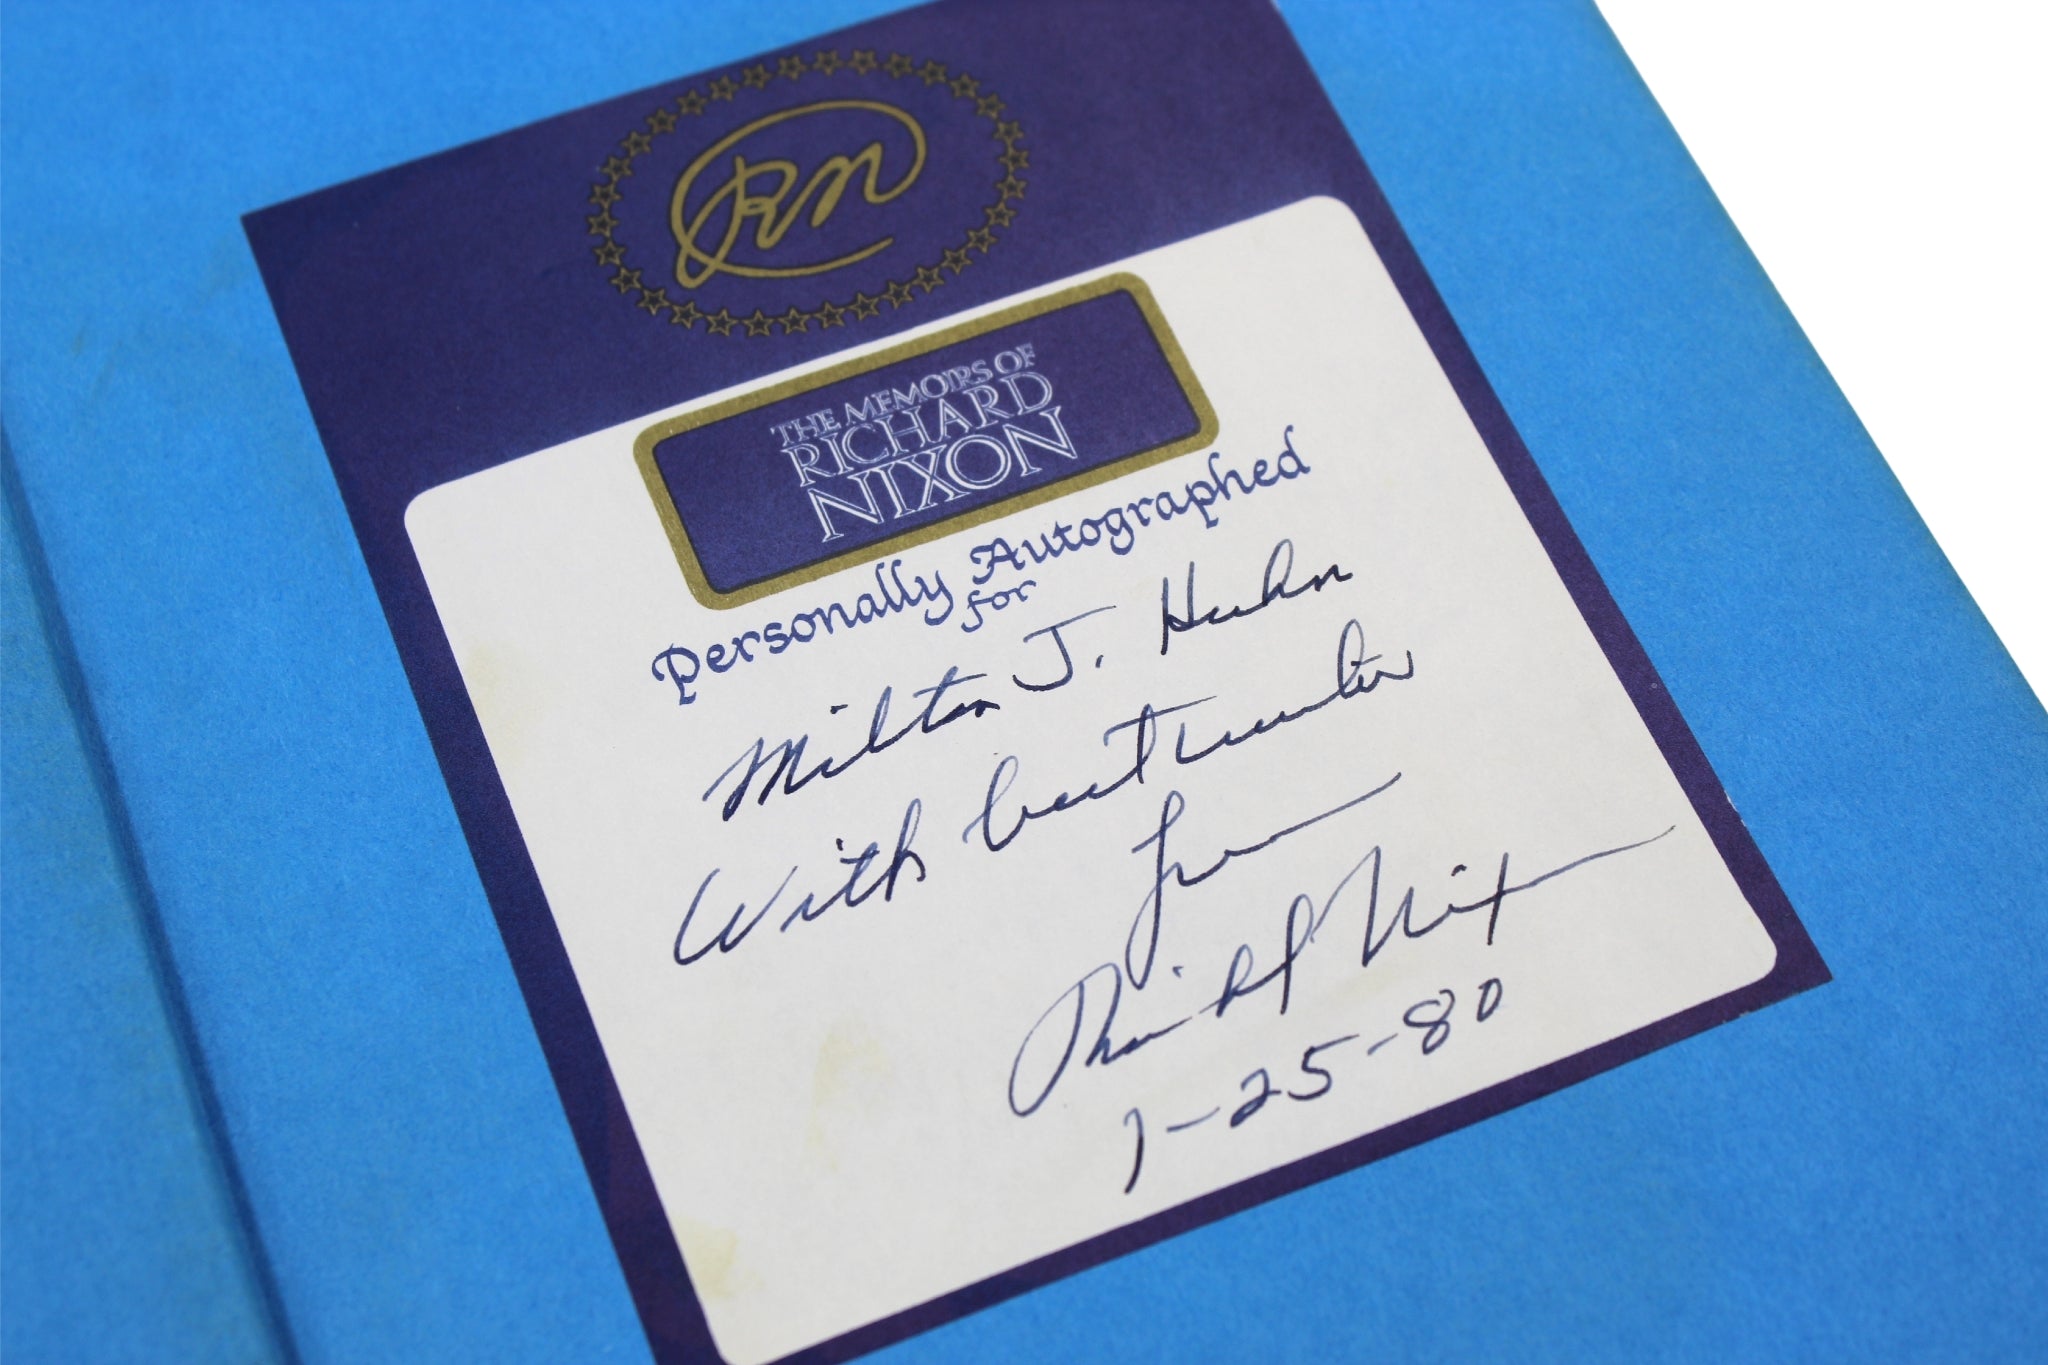 RN
THE MEMOIRS OF
RICHARD
NIXON
Personally Autographed
for
Milton J. Huhn
With best wishes
from
Richard Nixon
1-25-80